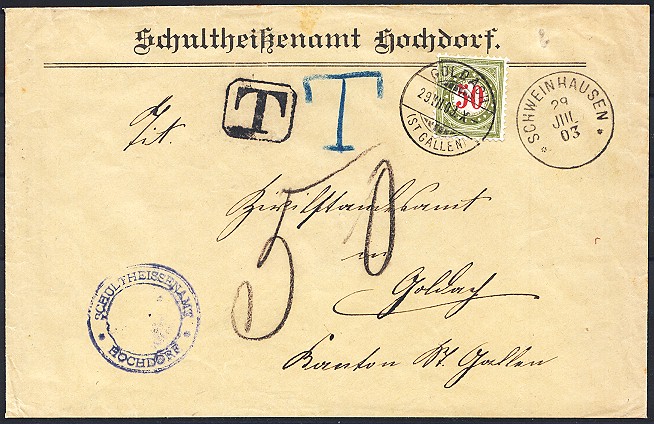 Schultheißenamt Hochdorf.
T
T
GOLDACH
29.VII.03.X
(ST. GALLEN)
50
SCHWEINHAUSEN
29
JUL
03
Tit.
50
Zivilstandsamt
in
Goldach
Kanton St. Gallen
SCHULTHEISSENAMT
* HOCHDORF *